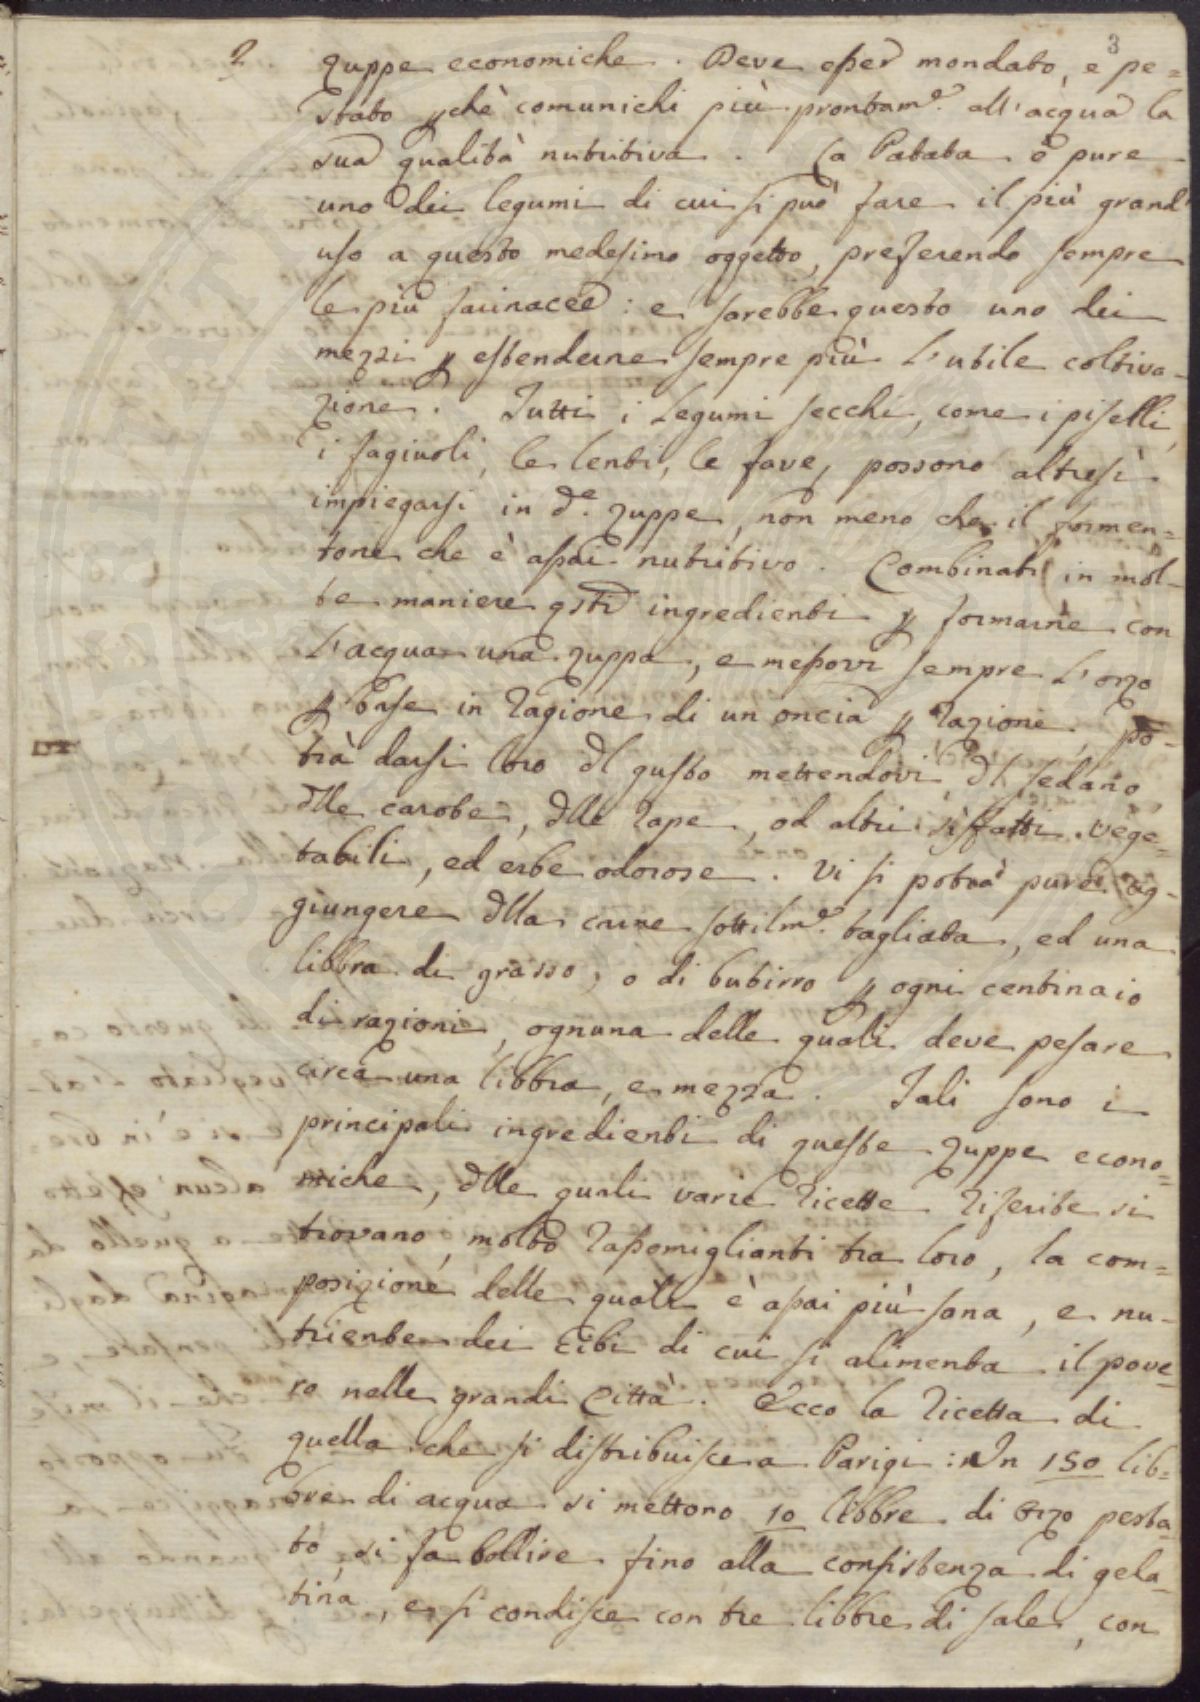 3
2 zuppe economiche. Deve esser mondato, e pe=
stato pchè comunichi più prontam.e all'acqua la
sua qualità nutritiva. La Patata è pure
uno dei legumi di cui si può fare il più grand'
uso a questo medesimo oggetto, preferendo sempre
le più farinacee: e sarebbe questo uno dei
mezzi p estenderne sempre più l'utile coltiva-
zione. Tutti i Legumi secchi, come i piselli,
i fagiuoli, le lenti, le fave, possono altresì
impiegarsi in d.e zuppe, non meno che il formen=
tone che è assai nutritivo. Combinati in mol-
te maniere qsti ingredienti p formarne con
l'acqua una zuppa, e messovi sempre l'orzo
p base in ragione di un oncia p razione, po-
trà darsi loro dl gusto mettendovi dl sedano,
dlle carobe, dlle rape, od altri siffatti vege=
tabili, ed erbe odorose. Vi si potrà pure ag-
giungere dlla carne sottilm.e tagliata, ed una
libbra di grasso, o di butirro p ogni centinaio
di razioni, ognuna delle quali deve pesare
circa una libbra, e mezza. Tali sono i
principali ingredienti di queste zuppe econo=
miche, dlle quali varie ricette riferite si
trovano, molto rassomiglianti tra loro, la com=
posizione delle quali è assai più sana, e nu-
triente dei cibi di cui si alimenta il pove=
ro nelle grandi Città. Ecco la ricetta di
quella che si distribuisce a Parigi: In 150 lib=
bre di acqua si mettono 10 libbre di orzo pesta=
to, si fa bollire fino alla consistenza di gela-
tina, e si condisce con tre libbre di sale, con